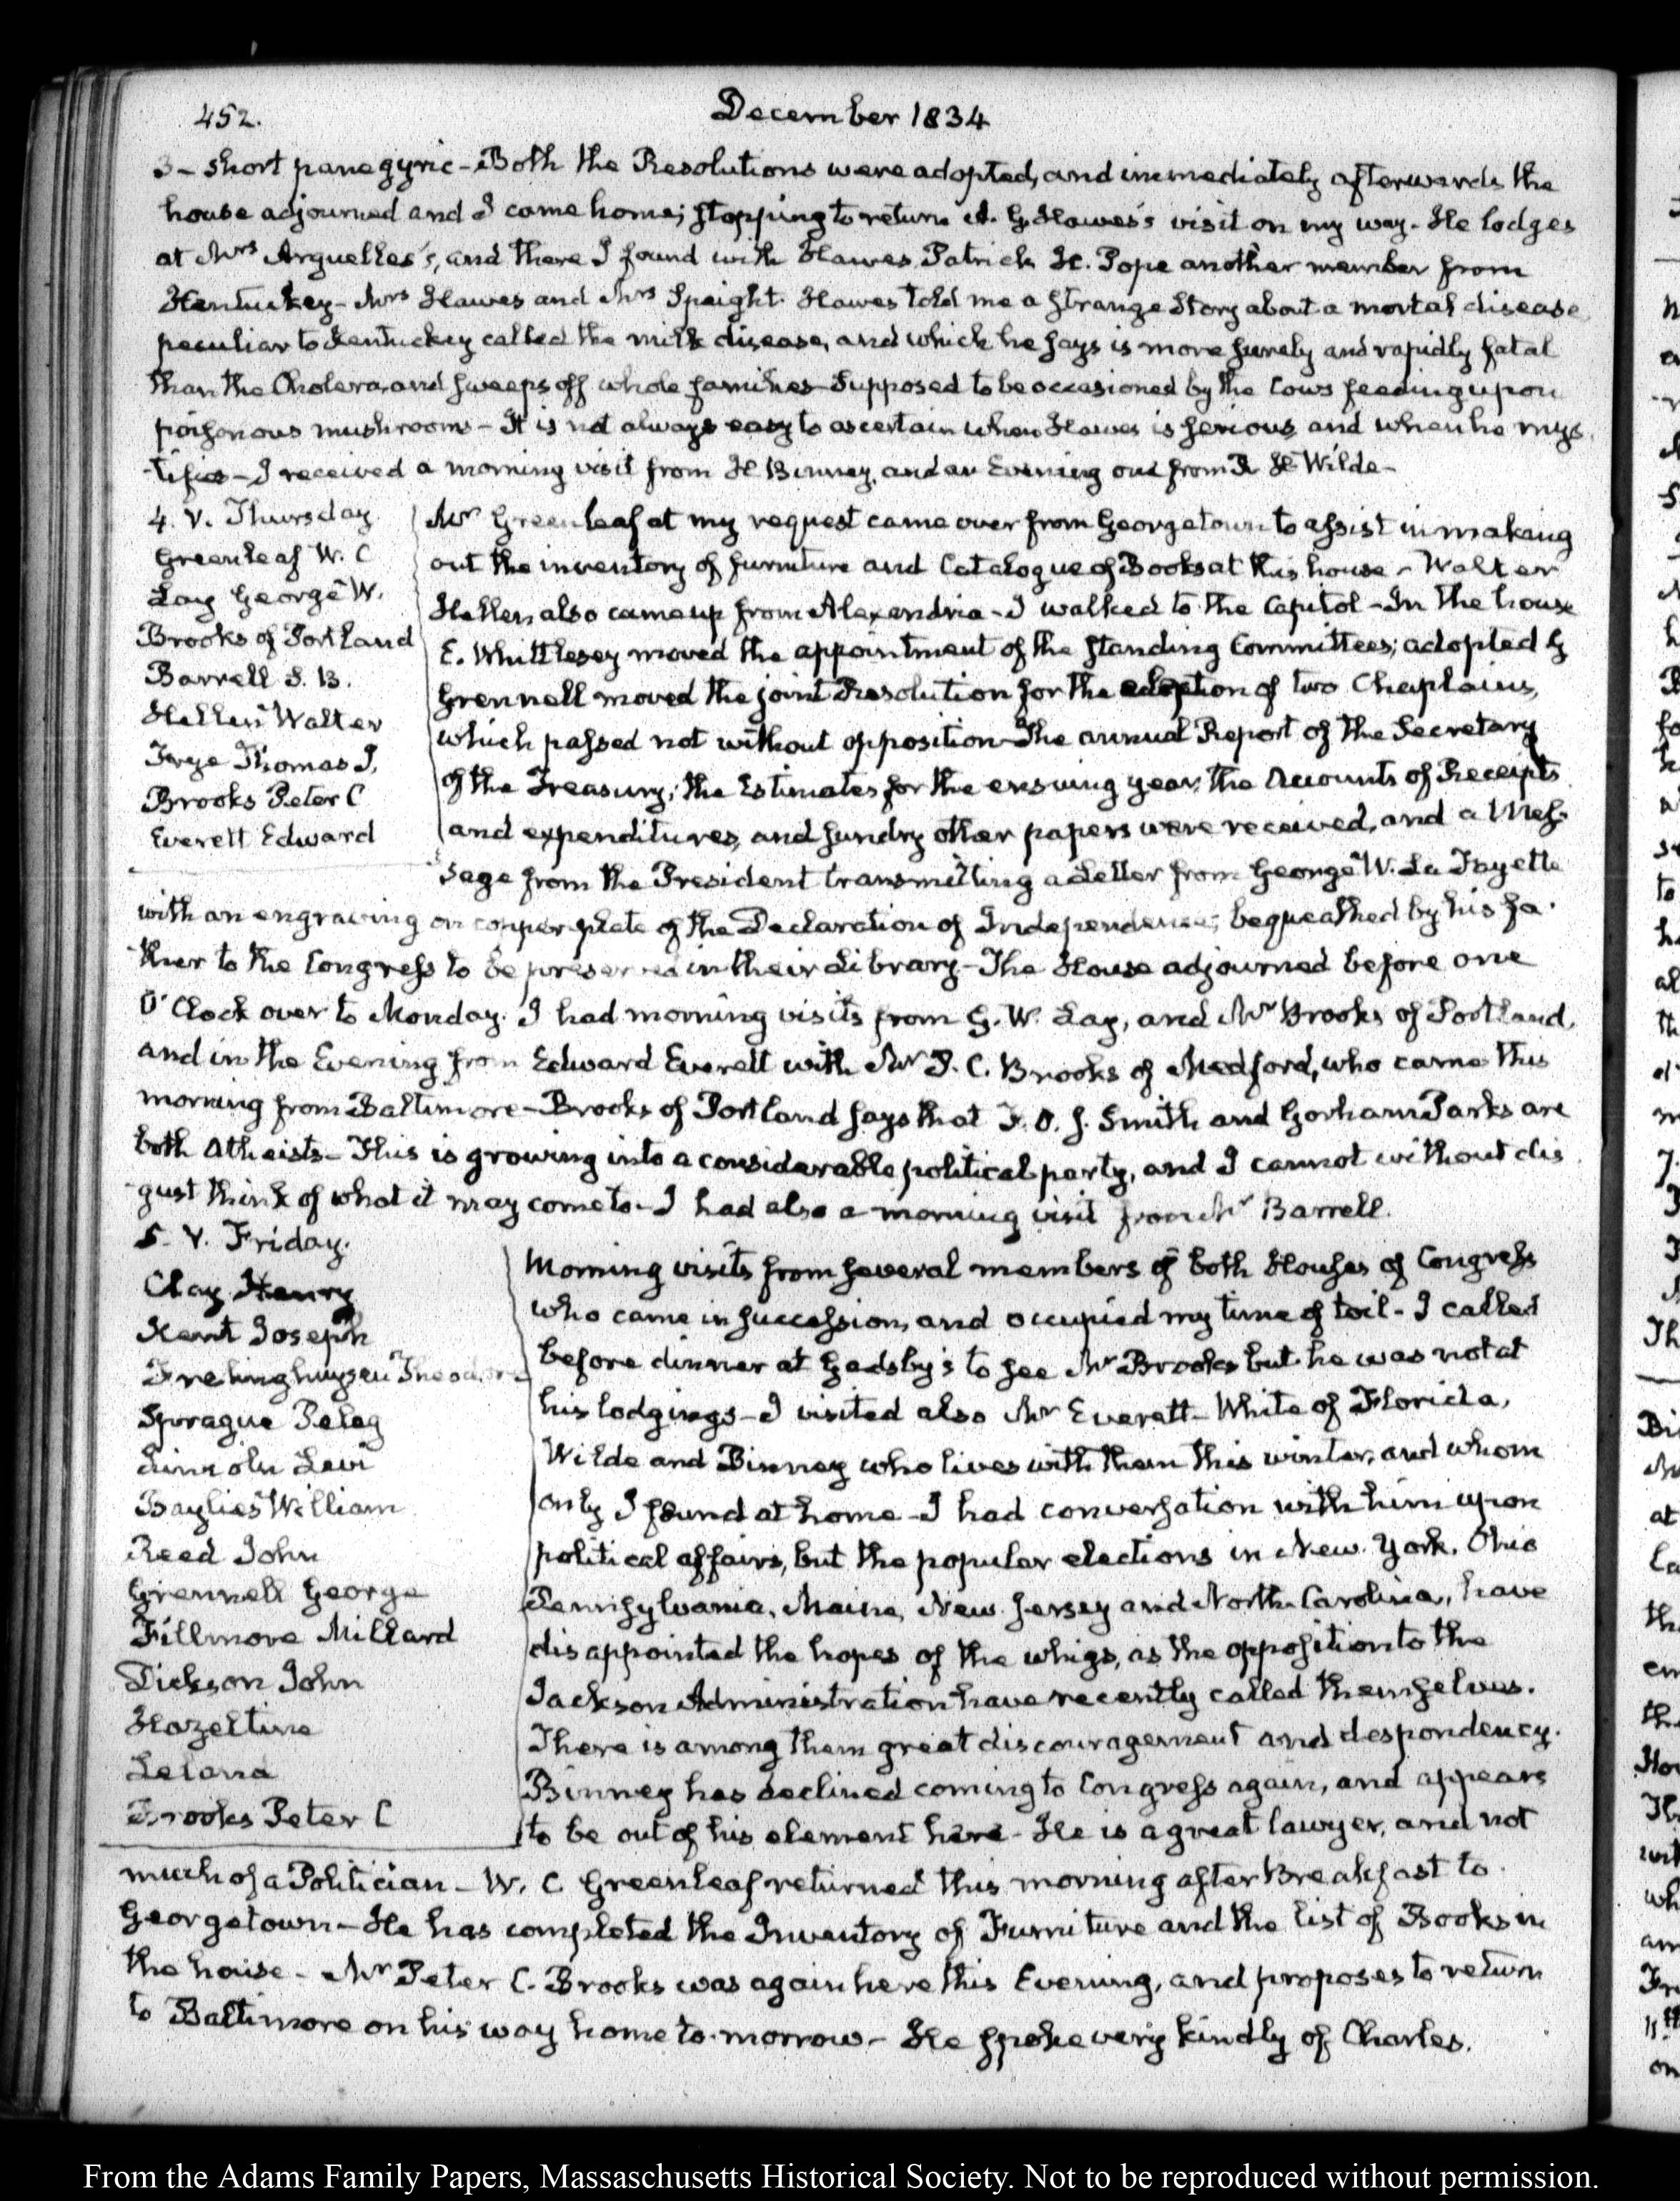 452.
December 1834
3 - short panegyric - Both the Resolutions were adopted, and immediately afterwards the
house adjourned and I came home; stopping to return A. G. Hawes's visit on my way. He lodges
at Mrs Arguelles's, and there I found with Hawes Patrick H. Pope another member from
Kentuckey - Mrs Hawes and Mrs Speight. Hawes told me a strange story about a mortal disease
peculiar to Kentuckey called the milk disease, and which he says is more surely and rapidly fatal
than the Cholera, and sweeps off whole families - Supposed to be occasioned by the Cows feeding upon
poisonous mushrooms - It is not always easy to ascertain when Hawes is serious and when he mys-
-tifies - I received a morning visit from H Binney, and an Evening one from R H Wilde -
4. V. Thursday
Greenleaf W. C
Lay George W.
Brooks of Portland
Barrell S. B.
Hellen Walter
Frye Thomas J.
Brooks Peter C
Everett Edward
Mr Greenleaf at my request came over from Georgetown to assist in making
out the inventory of furniture and Catalogue of Books at this house - Walter
Hellen also came up from Alexandria - I walked to the Capitol - In the house
E. Whittlesey moved the appointment of the standing Committees; adopted
Grennell moved the joint Resolution for the election of two Chaplains,
which passed not without opposition - The annual Report of the Secretary
of the Treasury; the Estimates for the ensuing year, the Accounts of Receipts
and expenditures, and sundry other papers were received, and a Mes-
-sage from the President transmitting a Letter from George W. La Fayette
with an engraving on copper plate of the Declaration of Independence; bequeathed by his fa-
-ther to the Congress to be preserved in their Library - The House adjourned before one
O'Clock over to Monday. I had morning visits from G. W. Lay, and Mr Brooks of Portland,
and in the Evening from Edward Everett with Mr P. C. Brooks of Medford, who came this
morning from Baltimore - Brooks of Portland says that F. O. J. Smith and Gorham Parks are
both Atheists - This is growing into a considerable political party, and I cannot without dis
-gust think of what it may come to - I had also a morning visit from Mr Barrell.
5. V. Friday.
Clay Henry
Kent Joseph
Frelinghuysen Theodore
Sprague Peleg
Lincoln Levi
Baylies William
Reed John
Grennell George
Fillmore Millard
Dickson John
Hazeltine
Leland
Brooks Peter C
Morning visits from several members of both Houses of Congress
who came in succession, and occupied my time of toil - I called
before dinner at Gadsby's to see Mr Brooks but he was not at
his lodgings - I visited also Mr Everett - White of Florida,
Wilde and Binney who lives with them this winter, and whom
only I found at home - I had conversation with him upon
political affairs, but the popular elections in New-York, Ohio
Pennsylvania, Maine, New Jersey and North-Carolina, have
disappointed the hopes of the whigs, as the opposition to the
Jackson Administration have recently called themselves.
There is among them great discouragement and despondency.
Binney has declined coming to Congress again, and appears
to be out of his element here - He is a great lawyer, and not
much of a Politician - W. C Greenleaf returned this morning after Breakfast to
Georgetown - He has completed the Inventory of Furniture and the list of Books in
the house - Mr Peter C. Brooks was again here this Evening, and proposes to return
to Baltimore on his way home to-morrow - He spoke very kindly of Charles.
From the Adams Family Papers, Massaschusetts Historical Society. Not to be reproduced without permission.